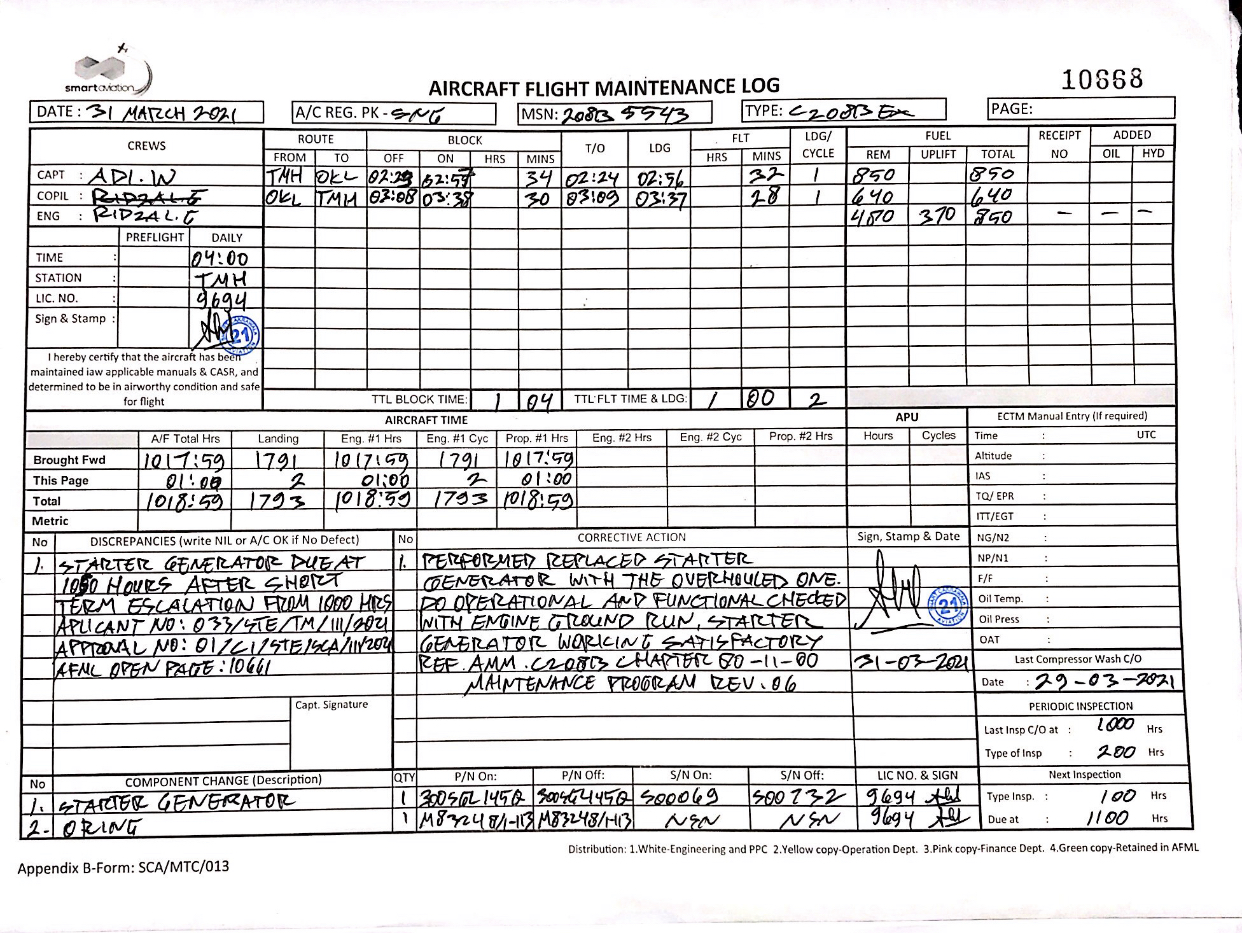 smartaviation
AIRCRAFT FLIGHT MAINTENANCE LOG
10668
DATE : 31 MARCH 2021
A/C REG. PK - SNG
MSN: 208B 5543
TYPE: C208B Ex
PAGE:
CREWS ROUTE BLOCK T/O LDG FLT LDG/ CYCLE FUEL RECEIPT NO ADDED
FROM TO OFF ON HRS MINS HRS MINS REM UPLIFT TOTAL OIL HYD
CAPT : ADI.W TMH OKL 02:23 02:57 34 02:24 02:56 32 1 850 850
COPIL : RIDZAL.G OKL TMH 03:08 03:38 30 03:09 03:37 28 1 640 640
ENG : RIDZAL.G 480 370 850 — — —
PREFLIGHT DAILY
TIME : 04:00
STATION : TMH
LIC. NO. : 9694
Sign & Stamp : 21
I hereby certify that the aircraft has been
maintained iaw applicable manuals & CASR, and
determined to be in airworthy condition and safe
for flight
TTL BLOCK TIME: 1 04 TTL FLT TIME & LDG: 1 00 2
AIRCRAFT TIME APU ECTM Manual Entry (If required)
A/F Total Hrs Landing Eng. #1 Hrs Eng. #1 Cyc Prop. #1 Hrs Eng. #2 Hrs Eng. #2 Cyc Prop. #2 Hrs Hours Cycles Time : UTC
Brought Fwd 1017:59 1791 1017:59 1791 1017:59 Altitude :
This Page 01:00 2 01:00 2 01:00 IAS :
Total 1018:59 1793 1018:59 1793 1018:59 TQ/ EPR :
Metric ITT/EGT :
No DISCREPANCIES (write NIL or A/C OK if No Defect) No CORRECTIVE ACTION Sign, Stamp & Date NG/N2 :
1. STARTER GENERATOR DUE AT 1. PERFORMED REPLACED STARTER NP/N1 :
1050 HOURS AFTER SHORT GENERATOR WITH THE OVERHOULED ONE. F/F :
TERM ESCALATION FROM 1000 HRS DO OPERATIONAL AND FUNCTIONAL CHECKED 21 Oil Temp. :
APLICANT NO: 033/STE/TM/III/2021 WITH ENGINE GROUND RUN, STARTER Oil Press :
APPROVAL NO: 01/C1/STE/SCA/III/2021 GENERATOR WORKING SATISFACTORY OAT :
AFML OPEN PAGE: 10661 REF. AMM. C208B CHARTER 80-11-00 31-03-2021 Last Compressor Wash C/O
MAINTENANCE PROGRAM REV. 06 Date : 29-03-2021
Capt. Signature PERIODIC INSPECTION
Last Insp C/O at : 1000 Hrs
Type of Insp : 200 Hrs
No COMPONENT CHANGE (Description) QTY P/N On: P/N Off: S/N On: S/N Off: LIC NO. & SIGN Next Inspection
1. STARTER GENERATOR 1 300SGL145Q 300SGL145Q S00069 S00732 9694 Type Insp. : 100 Hrs
2- ORING 1 M83248/1-113 M83248/1-113 NSN NSN 9694 Due at : 1100 Hrs
Distribution: 1.White-Engineering and PPC 2.Yellow copy-Operation Dept. 3.Pink copy-Finance Dept. 4.Green copy-Retained in AFML
Appendix B-Form: SCA/MTC/013